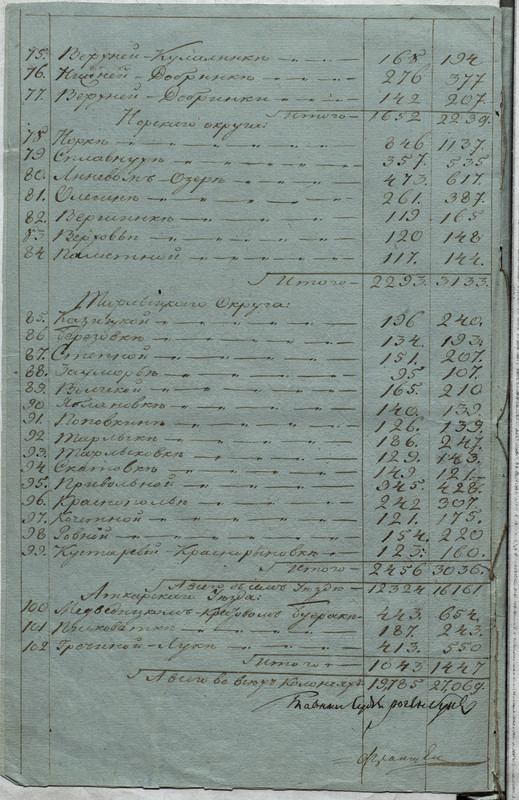 75. Верхней-Кулалинкѣ 168 194
76. Нижней-Добринкѣ 276 377
77. Верхней-Добринки 142 207
Итого 1652 2239.
Норскаго округа:
78 Норкѣ 846 1137.
79 Сплавнухѣ 357. 535
80. Линевомъ Озерѣ 473. 617.
81. Олешнѣ 261. 387.
82. Вершинкѣ 119 165
83 Верховьѣ 120 148
84 Памятной 117. 144.
Итого 2293. 3133.
Тарлыцкаго Округа:
85. Казицкой 196 240.
86 Березовкѣ 134. 193.
87. Степной 151. 207.
88. Зауморьѣ 95 107.
89. Волчской 165. 210
90 Яблановкѣ 140. 139.
91. Поповкинѣ 126. 139
92 Тарлыкѣ 186. 247.
93. Тарлыковкѣ 129. 143.
94 Скатовкѣ 149. 121.
95. Привольной 345. 428.
96. Краснопольѣ 242 307.
97. Кочетной 121. 175.
98 Ровной 154. 220
99. Кустаревой-Краснорыновкѣ 123. 160.
Итого 2456 3036.
А всего въ семъ Уѣздѣ 12324 16161
Аткарскаго Уѣзда:
100 Медведицкомъ-Крестовомъ Буеракѣ 443. 654.
101 187. 243.
102 Гречиной-Лукѣ 413. 550
Итого 1043 1447
А всего во всѣхъ Колонияхъ 19,785 27,069.
Главный Судья